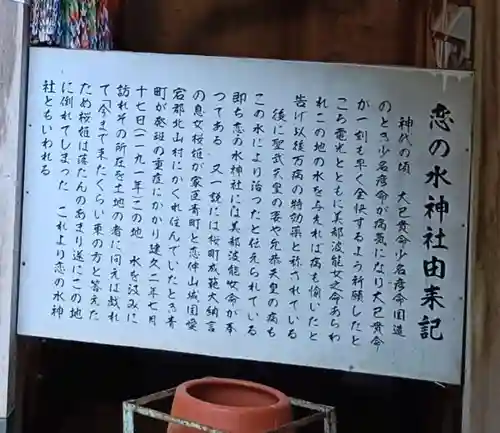 恋の水神社由来記
神代の頃 大己貴命少名彦命国造
のとき少名彦命が病気になり大己貴命
が一刻も早く全快するよう祈願したと
ころ電光とともに美都波能女之命あらわ
れこの地の水を与えれば病も愉いたと
告げ以後万病の特効薬と称されている
後に聖武天皇の妻や允恭天皇の病も
この水により治つたと伝えられている
即ち恋の水神社には美都波能女命が奉
つてある 又一説には桜町成範大納言
の息女桜姫が家臣青町と恋仲山城国愛
宕郡北山村にかくれ住んでいたとき青
町が発斑の重症にかかり建久二年七月
十七日(一一九一年)この地 水を汲みに
訪れその所在を土地の者に問えば戯れ
て「今まで来たくらい東の方と答えた
ため桜姫は落たんのあまり遂にこの地
に倒れてしまった これより恋の水神
社ともいわれる